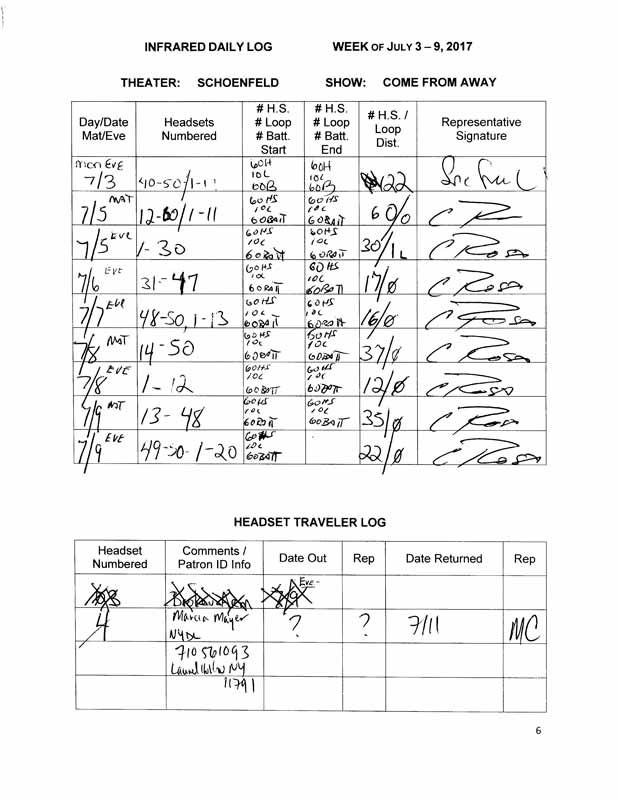 INFRARED DAILY LOG WEEK OF JULY 3 – 9, 2017
THEATER: SCHOENFELD SHOW: COME FROM AWAY
Day/Date Mat/Eve Headsets Numbered # H.S. # Loop # Batt. Start # H.S. # Loop # Batt. End # H.S. / Loop Dist. Representative Signature
Mon EVE 7/3 40-50/1-11 60H 10L 60B 60H 10L 60B 22
7/5 MAT 12-60/1-11 60HS 10L 60BATT 60HS 10L 60BATT 60/0 C Rosa
7/5 EVE 1-30 60HS 10L 60BATT 60HS 10L 60BATT 30/1L C Rosa
7/6 EVE 31-47 60HS 10L 60BATT 60HS 10L 60BATT 17/0 C Rosa
7/7 EVE 48-50, 1-13 60HS 10L 60BATT 60HS 10L 60BATT 16/0 C Rosa
7/8 MAT 14-50 60HS 10L 60BATT 60HS 10L 60BATT 37/0 C Rosa
7/8 EVE 1-12 60HS 10L 60BATT 60HS 10L 60BATT 12/0 C Rosa
7/9 MAT 13-48 60HS 10L 60BATT 60HS 10L 60BATT 35/0 C Rosa
7/9 EVE 49-50-1-20 60HS 10L 60BATT 22/0 C Rosa
HEADSET TRAVELER LOG
Headset Numbered Comments / Patron ID Info Date Out Rep Date Returned Rep
7/9 EVE-
4 Marcia Mayer NYDL ? ? 7/11 MC
710561093
Laurel Hollow NY
11791
6